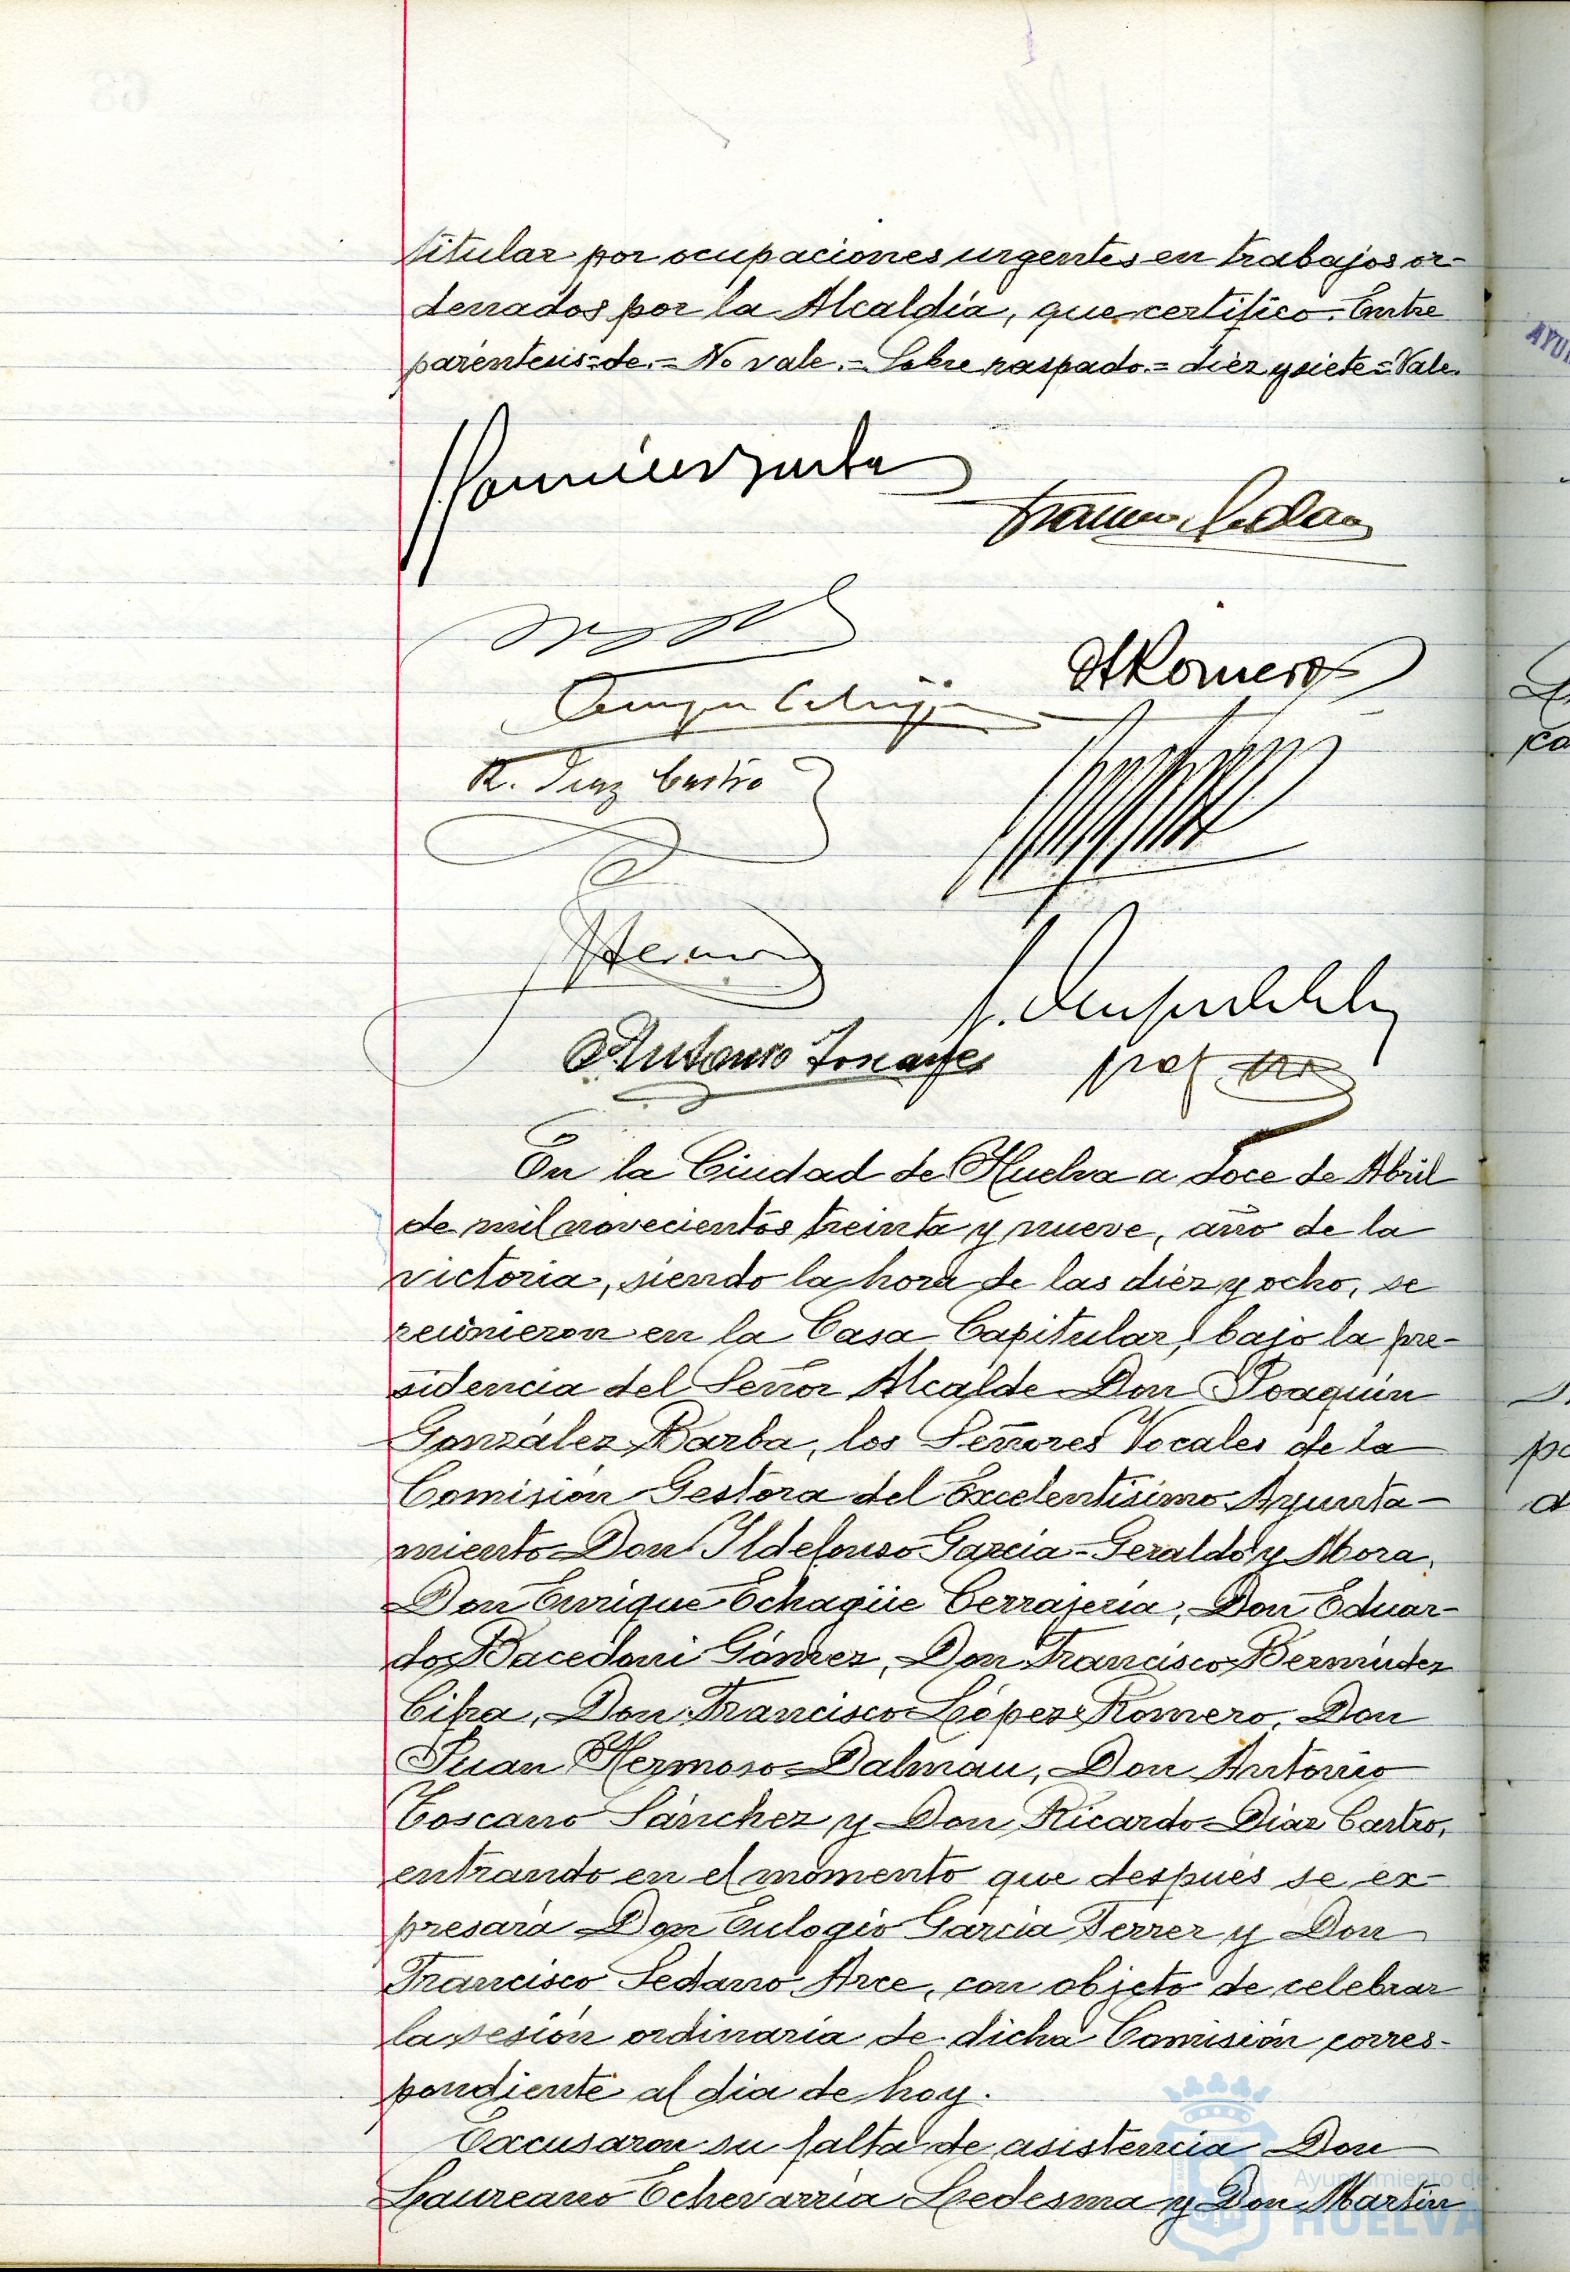 titular por ocupaciones urgentes en trabajos or-
denados por la Alcaldía, que certifico. Entre
paréntesis=de.= No vale.= Sobre raspado.= diez y siete=Vale.
Romero
R. Diaz Castro
En la Ciudad de Huelva a doce de Abril
de mil novecientos treinta y nueve, año de la
victoria, siendo la hora de las diez y ocho, se
reunieron en la Casa Capitular, bajo la pre-
sidencia del Señor Alcalde Don Joaquín
González Barba, los Señores Vocales de la
Comisión Gestora del Excelentísimo Ayunta-
miento Don Ildefonso García-Geraldo y Mora,
Don Enrique Echagüe Cerrajería, Don Eduar-
do Bacedoni Gómez, Don Francisco Bermúdez
Cifra, Don Francisco López Romero, Don
Juan Hermoso Dalmau, Don Antonio
Toscano Sánchez y Don Ricardo Diaz Castro,
entrando en el momento que después se ex-
presará Don Eulogio García Ferrer y Don
Francisco Sedano Arce, con objeto de celebrar
la sesión ordinaria de dicha Comisión corres-
pondiente al día de hoy.
Excusaron su falta de asistencia Don
Laureano Echevarría Ledesma y Don Martín
Ayuntamiento de
HUELVA